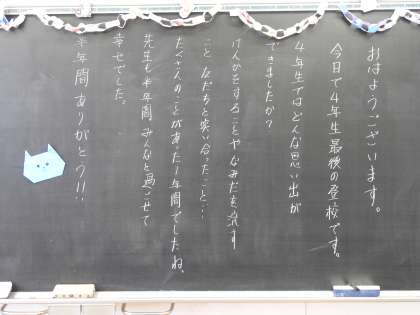 おはようございます。
今日で4年生最後の登校です。
4年生ではどんな思い出が
できましたか?
けんかをすることやなみだを流す
こと 友だちと笑い合ったこと…
たくさんのことがあった1年間でしたね。
先生も半年間 みんなと過ごせて
幸せでした。
半年間 ありがとう!!